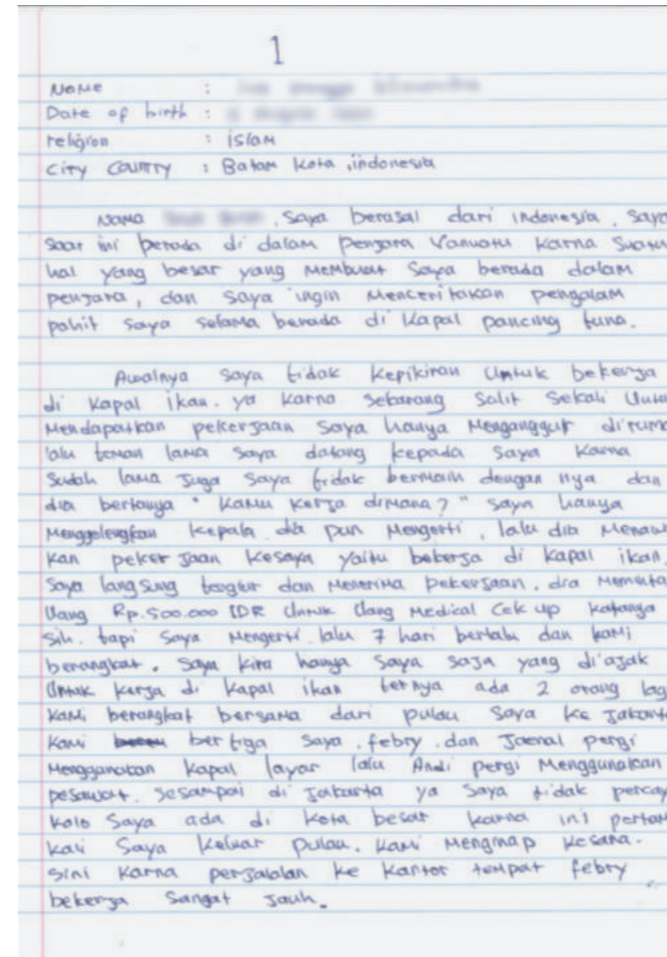 1
Name :
Date of birth :
religion : islam
City Country : Batam Kota, indonesia
Nama , saya berasal dari indonesia. saya
saat ini berada di dalam penjara Vanuatu karna suatu
hal yang besar yang membuat saya berada dalam
penjara, dan saya ingin menceritakan pengalam
pahit saya selama berada di kapal pancing tuna.
Awalnya saya tidak kepikiran untuk bekerja
di kapal ikan. ya karna sekarang salit sekali
Mendapatkan pekerjaan saya hanya menganggur
lalu teman lama saya datang kepada saya karna
sudah lama juga saya tidak bermain dengan nya dan
dia bertanya " kamu kerja dimana ? " saya hanya
Menggelengkan kepala dia pun mengerti, lalu dia
kan pekerjaan kesaya yaitu bekerja di kapal ikan.
saya langsung dan menerima pekerjaan. dia meminta
Uang Rp.500.000 IDR untuk Uang medical cek up katanya
sih. tapi saya mengerti. lalu 7 hari berlalu dan kami
berangkat. saya kira hanya saya saja yang di'ajak
untuk kerja di kapal ikan ternya ada 2 orang
kami berangkat bersama dari pulau saya ke
kami bertiga saya, febry, dan Jaenal pergi
Menggunakan kapal layar lalu Andi pergi menggunakan
pesawat. sesampai di Jakarta ya saya tidak
kalo saya ada di kota besar karna ini
kali saya keluar pulau. kami menginap kesana.
sini karna ke kantor tempat febry
bekerja sangat jauh.